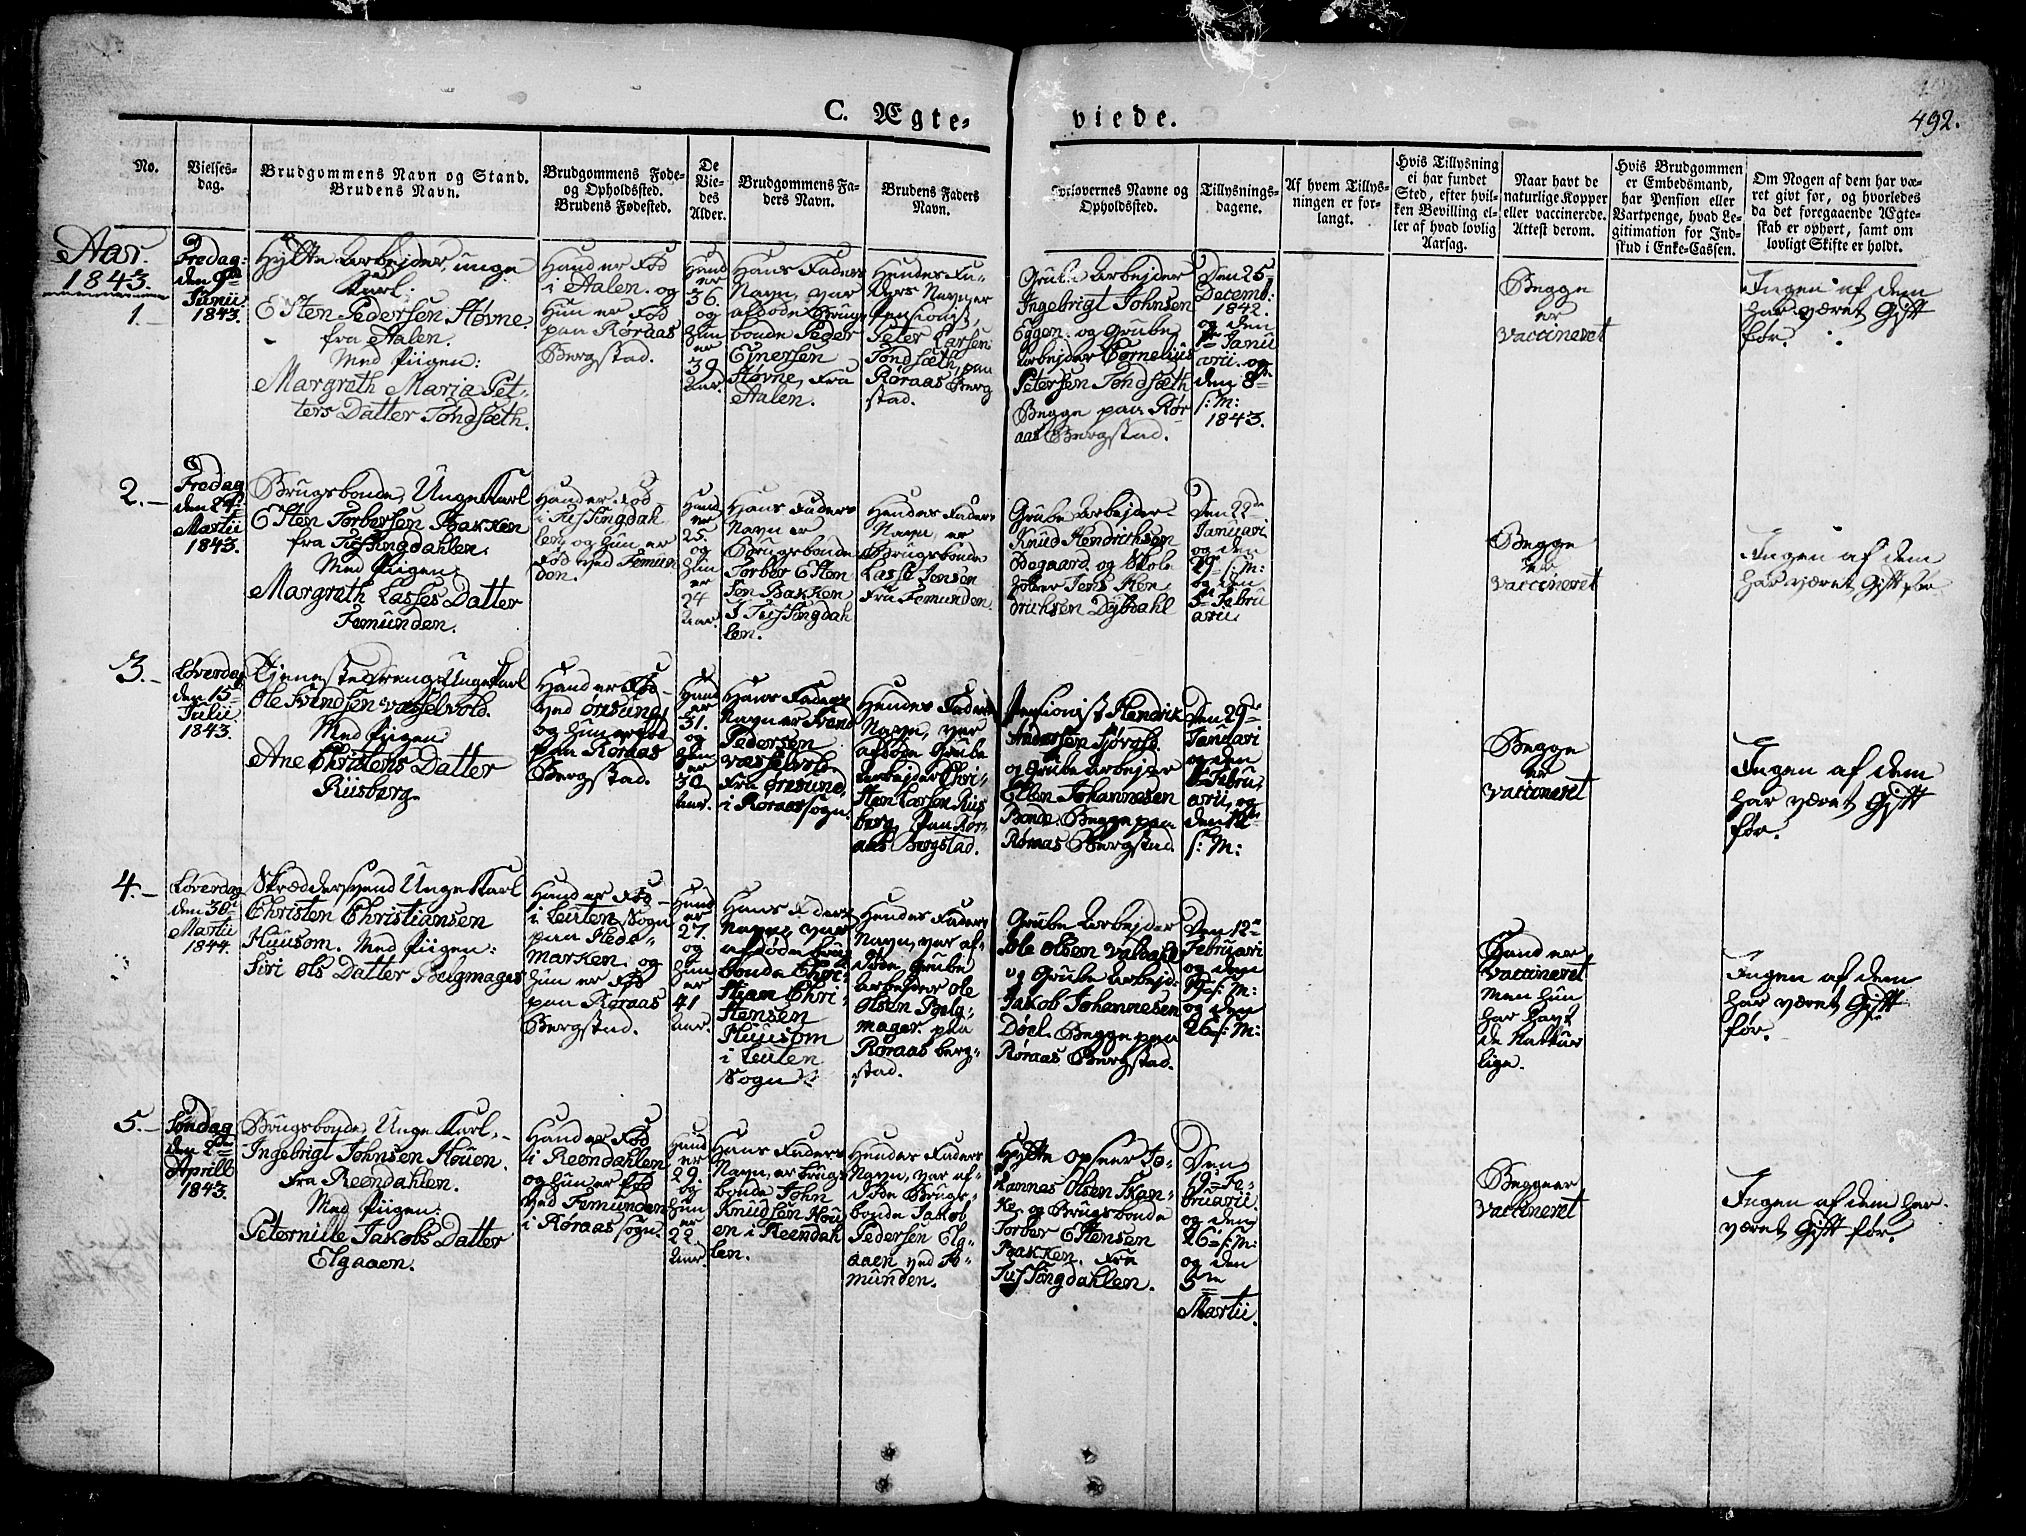 C. Ægte-
viede.
492.
No.
Vielses-
dag.
Brudgommens Navn og Stand.
Brudens Navn.
Brudgommens Føde-
og Opholdssted.
Brudens Fødested.
De
Vie-
des
Alder.
Brudgommens Fa-
ders Navn.
Brudens Faders
Navn.
Forlovernes Navne og
Opholdssted.
Tillysnings-
dagene.
Af hvem Tillys-
ningen er for-
langt.
Hvis Tillysning
ei har fundet
Sted, efter hvil-
ken Bevilling el-
ler af hvad lovlig
Aarsag.
Naar havt de
naturlige Kopper
eller vaccinerede.
Attest derom.
Hvis Brudgommen
er Embedsmand,
har Pension eller
Vartpenge, hvad Le-
gitimation for Ind-
skud i Enke-Cassen.
Om Nogen af dem har væ-
ret givt før, og hvorledes
da det foregaaende Ægte-
skab er ophørt, samt om
lovligt Skifte er holdt.
Aar.
1843.
1.
Fredag
den 9de
Junii
1843.
Hytte Arbejder, unge
Karl:
Esten Pedersen Høvne.
fra Aalen.
Med Piigen:
Margreth Maria Pet-
ters Datter Tøndsæth.
Hand er Fød
i Aalen. og
Hun er Fød
paa Røraas
Bergstad.
Hand
er
36.
og
Hun
er
39
Aar.
Hans Faders
Navn, var
afdøde Brugs
bonde Peder
Ejnersen
Høvne, Fra
Aalen.
Hendes Fa-
ders Navn er
Pensionist,
Peter Larsen
Tøndsæth, paa
Røraas Berg
stad.
Grube Arbejder
Ingebrigt Johnsen
Eggen. og Grube
Arbejder Cornelius
Petersen Tøndsæth
Begge paa Rør
aas Bergstad.
Den 25de
Decemb:
1842.
og den
1te Janu
arii. og
den 8de
s: M:
1843.
Begge
er
vaccineret
Ingen af dem
har været Gift
før.
2.
Fredag
den 24de
Martii
1843.
Brugsbonde, Unge Karl
Esten Torbersen Bakken
fra Tufsingdahlen.
Med Piigen:
Margreth Lasses Datter
Femunden.
Hand er Fød
i Tufsingdah
len og Hun er
Fød ved Femun
den.
Hand
er
25.
og
Hun
er
24
Aar.
Hans Faders
Navn er
Brugsbonde
Torber Esten
sen Bakken
I Tufsingdah
len.
Hendes Faders
Navn, er
Brugsbonde
Lasse Jensen
Fra Femunden.
Grube Arbejder
Knud Hendrichsen
Ødegaard. og Skole
holder Jens Hen
drichsen Dybdahl
Den 22de
Januari
og den
29de s: M:
og den
5te Febru
arii.
Begge
er
vaccineret
Ingen af dem
har været Gift før.
3.
Løverdag
den 15de
Julii
1843.
Tjenestedreng, Unge Karl
Ole Svendsen Vasselvold.
Med Piigen:
Ane Christens Datter
Riisberg.
Hand er Fød
ved Øresund,
og Hun er fød
paa Røraas
Bergstad.
Hand
er
31.
og
Hun
er
30
Aar.
Hans Faders
Navn er Svend
Pedersen
Vasselvold.
Fra Øresund,
i Røraas sogn.
Hendes Faders
Navn, var
afdøde Grube
Arbejder Chri-
sten Larsen Riis
berg, Paa Rør-
aas Bergstad.
Pensionist Hendrik
Andersen Sjøvold.
og Grube Arbejder
Esten Johannesen
Bonde. Begge paa
Røraas Bergstad.
Den 29de
Januari
og den
5te Febru
arii, og
den 12te
s: M:
Begge
er
vaccineret
Ingen af dem
har været Gift
før.
4.
Løverdag
den 30te
Martii
1844.
Skræddersvend Unge Karl
Christen Christiansen
Huusom. Med Piigen:
Siri Ols Datter Belgmager
Hand er Fød
i Leuten Sogn
paa Hede-
marken. og
Hun er Fød
paa Røraas
Bergstad.
Hand
er
27.
og
Hun
er
41
Aar.
Hans Faders
Navn, var
afdøde Brugs
bonde Chri-
stian Chri-
stensen
Huusom
i Leuten
Sogn
Hendes Faders
Navn, var af-
døde Grube
Arbejder Ole
Olsen Belg-
mager. paa
Røraas Berg-
stad.
Grube Arbejder
Ole Olsen Valdahl
og Grube Arbejd:
Jakob Johannesen
Døel. Begge paa
Røraas Bergstad.
Den 12te
Februari
og den
19de s: M:
og den
26de s: M:
Hand er
vaccineret
Men hun
har havt
de Nattur
lige.
Ingen af dem
har været Gift
før.
5.
Søndag
den 2den
Aprill
1843.
Brugsbonde, Unge Karl,
Ingebrigt Johnsen Houen.
Fra Reendahlen.
Med Piigen:
Peternille Jakobs Datter
Elgaaen.
Hand er Fød
i Reendahlen
og Hun er fød
ved Femunden
i Røraas sogn.
Hand
er
29.
og
Hun
er
22.
Aar.
Hans Faders
Navn, er Brugs
bonde John
Knudsen Hou
en i Reendah
len.
Hendes Faders
Navn, var af-
døde Brugs-
bonde Jakob
Pedersen Elg-
aaen ved Fe-
munden.
Hytte Opseer Jo-
hannes Olsen Skan-
ke, og Brugsbonde
Torber Estensen
Bakken. Fra
Tufsingdahlen.
Den
19de Fe-
bruarii
og den
26de s: M:
og den
5te
Martii.
Begge er
vaccineret
Ingen af dem har
været Gift før.